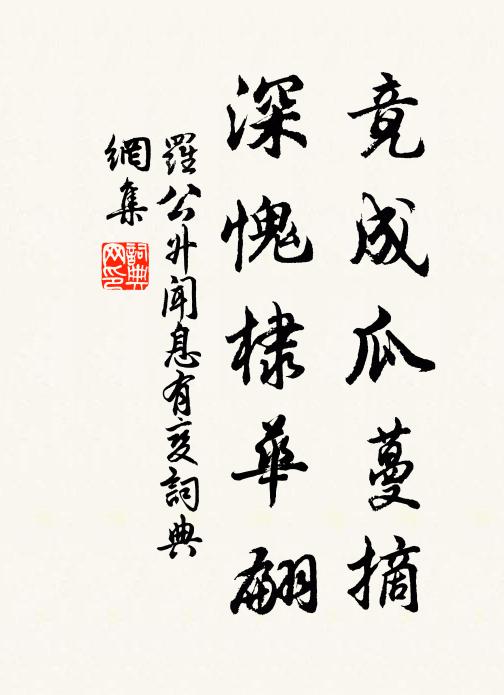 竟成瓜蔓摘
深愧棣華翩
羅公升聞息有變詞典
網集
詞典網印